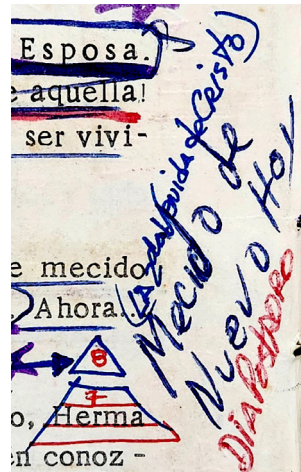 Esposa.
e aquella!
ser vivi-
e mecido
Ahora..
8
7
o, Herma
en conoz-
(la 2da Venida de Cristo)
Mecido de
Nuevo Hoy
Dia Postrero